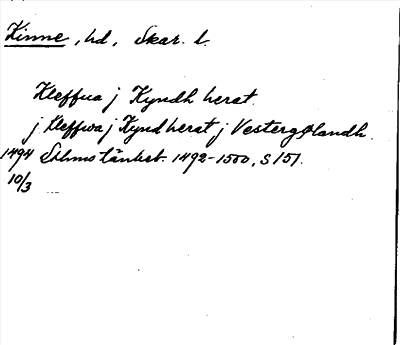 Kinne, hd, Skar. l.
Kleffua j Kyndh herat.
j Kleffwa j Kyndherat j Vestergølandh.
1494 Sthms tänkeb. 1492-1500, S 151.
10/3